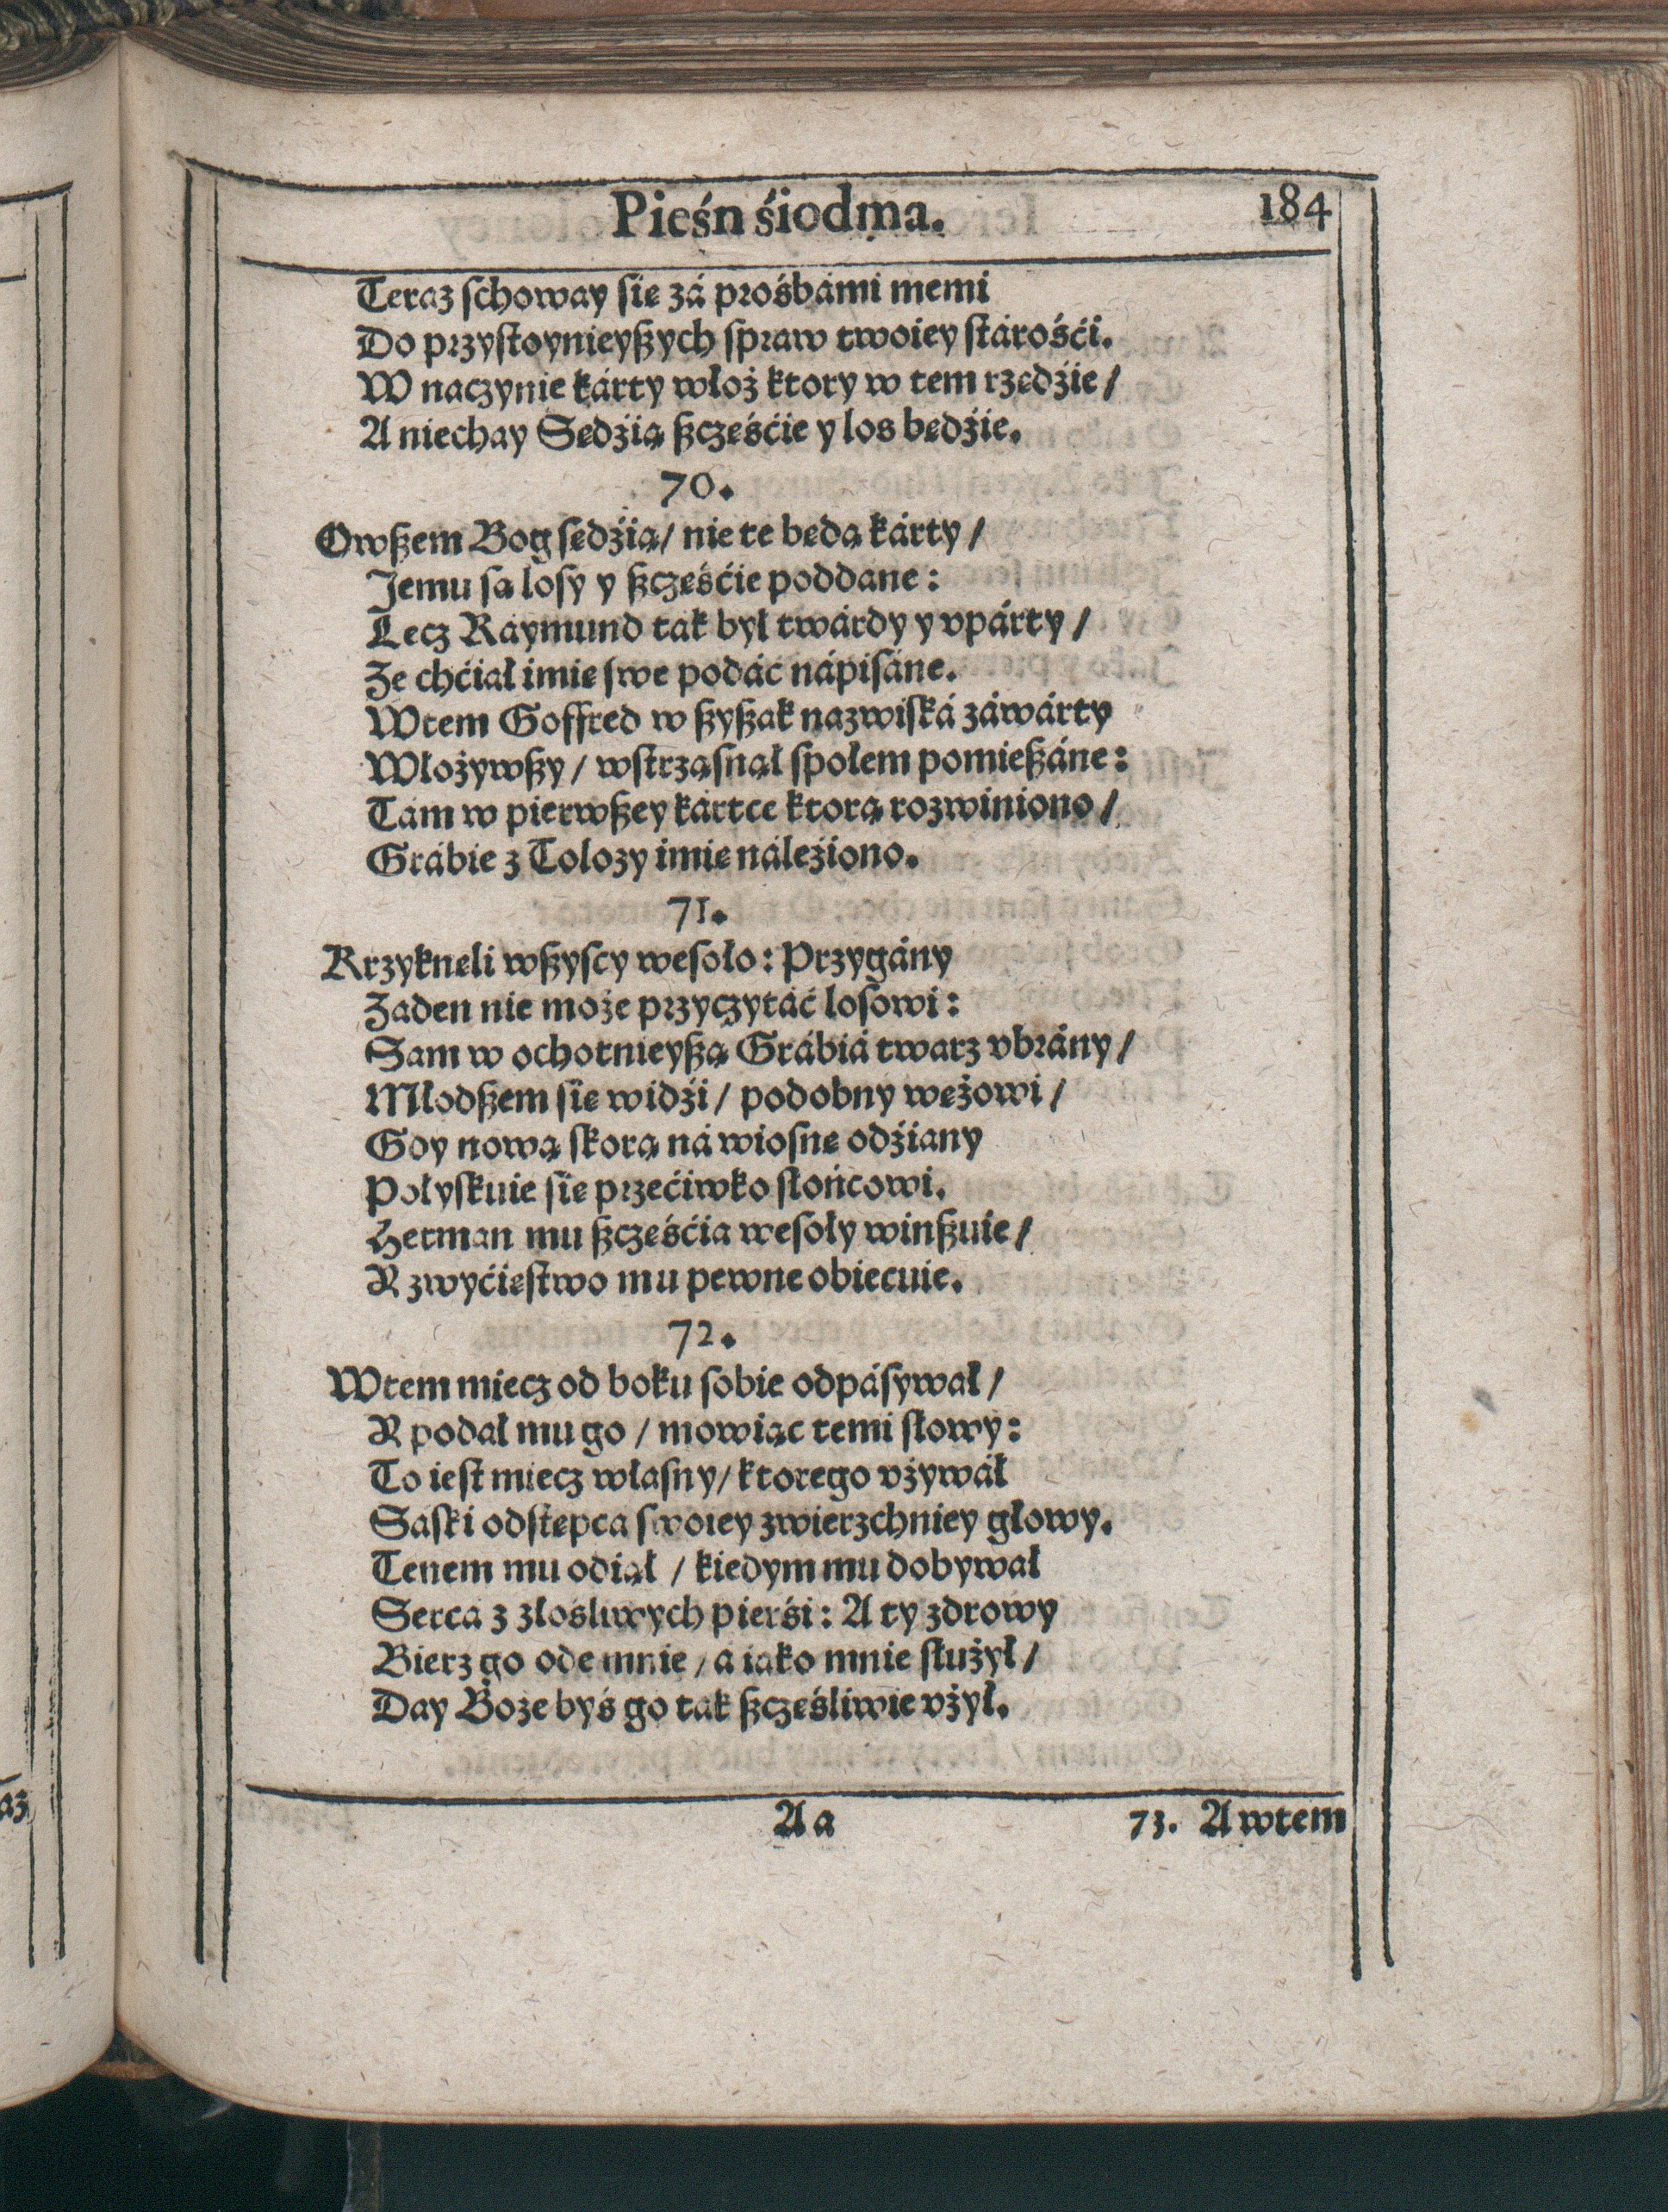 Pieśn śiodma.
184
Teraz schoway się zá prośbámi memi
Do przystoynieyszych spraw twoiey stárośći.
W naczynie kárty włoż ktory w tem rzędźie /
A niechay Sędźią szczęśćie y los będźie.
70.
Owszem Bog sędźią / nie te będą kárty /
Jemu są losy y szczęśćie poddane:
Lecz Ráymund tak był twárdy y vpárty /
Że chćiał imię swe podáć nápisáne.
Wtem Goffred w szyszak nazwiská záwárty
Włożywszy / wstrząsnął społem pomieszáne:
Tám w pierwszey kártce ktorą rozwiniono /
Grábie z Tolozy imię náleźiono.
71.
Krzyknęli wszyscy wesoło: Przygány
Żaden nie może przyczytáć losowi:
Sam w ochotnieyszą Grábiá twarz vbrány /
Młodszem się widźi / podobny wężowi /
Gdy nową skorą ná wiosnę odźiany
Połyskuie się przećiwko słońcowi.
Hetman mu szczęśćia wesoły winszuie /
Y zwyćięstwo mu pewne obiecuie.
72.
Wtem miecz od boku sobie odpásywał /
Y podał mu go / mowiąc temi słowy:
To iest miecz własny / ktorego vżywáł
Saski odstępca swoiey zwierzchniey głowy.
Tenem mu odiął / kiedym mu dobywał
Serca z złośliwych pierśi: A ty zdrowy
Bierz go ode mnie / á iáko mnie służył /
Day Boże byś go tak szczęśliwie vżył.
Aa
73. A wtem
aż